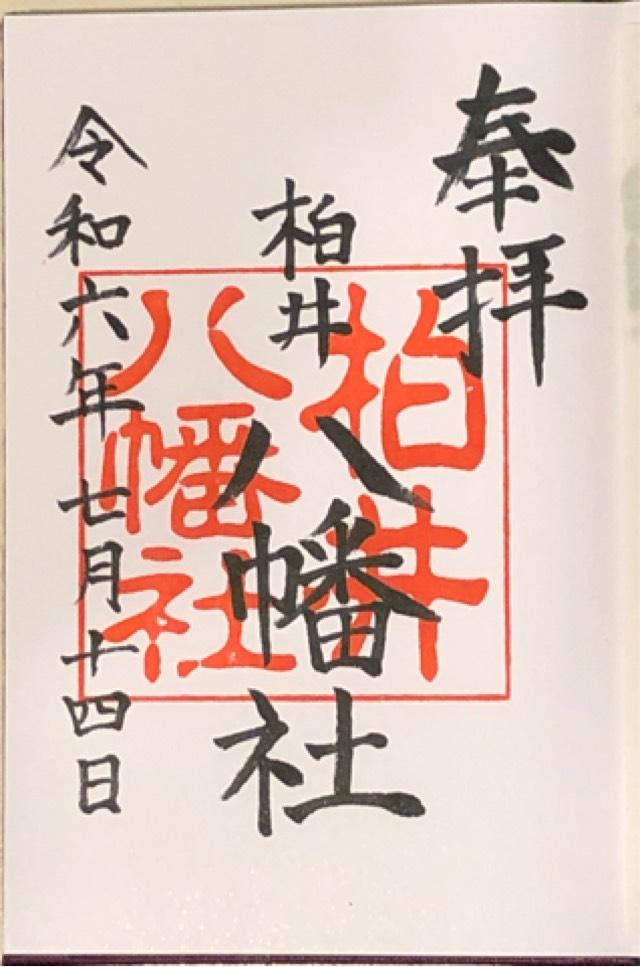 奉拝
柏井
八幡社
令和六年七月十四日
柏井
八幡社